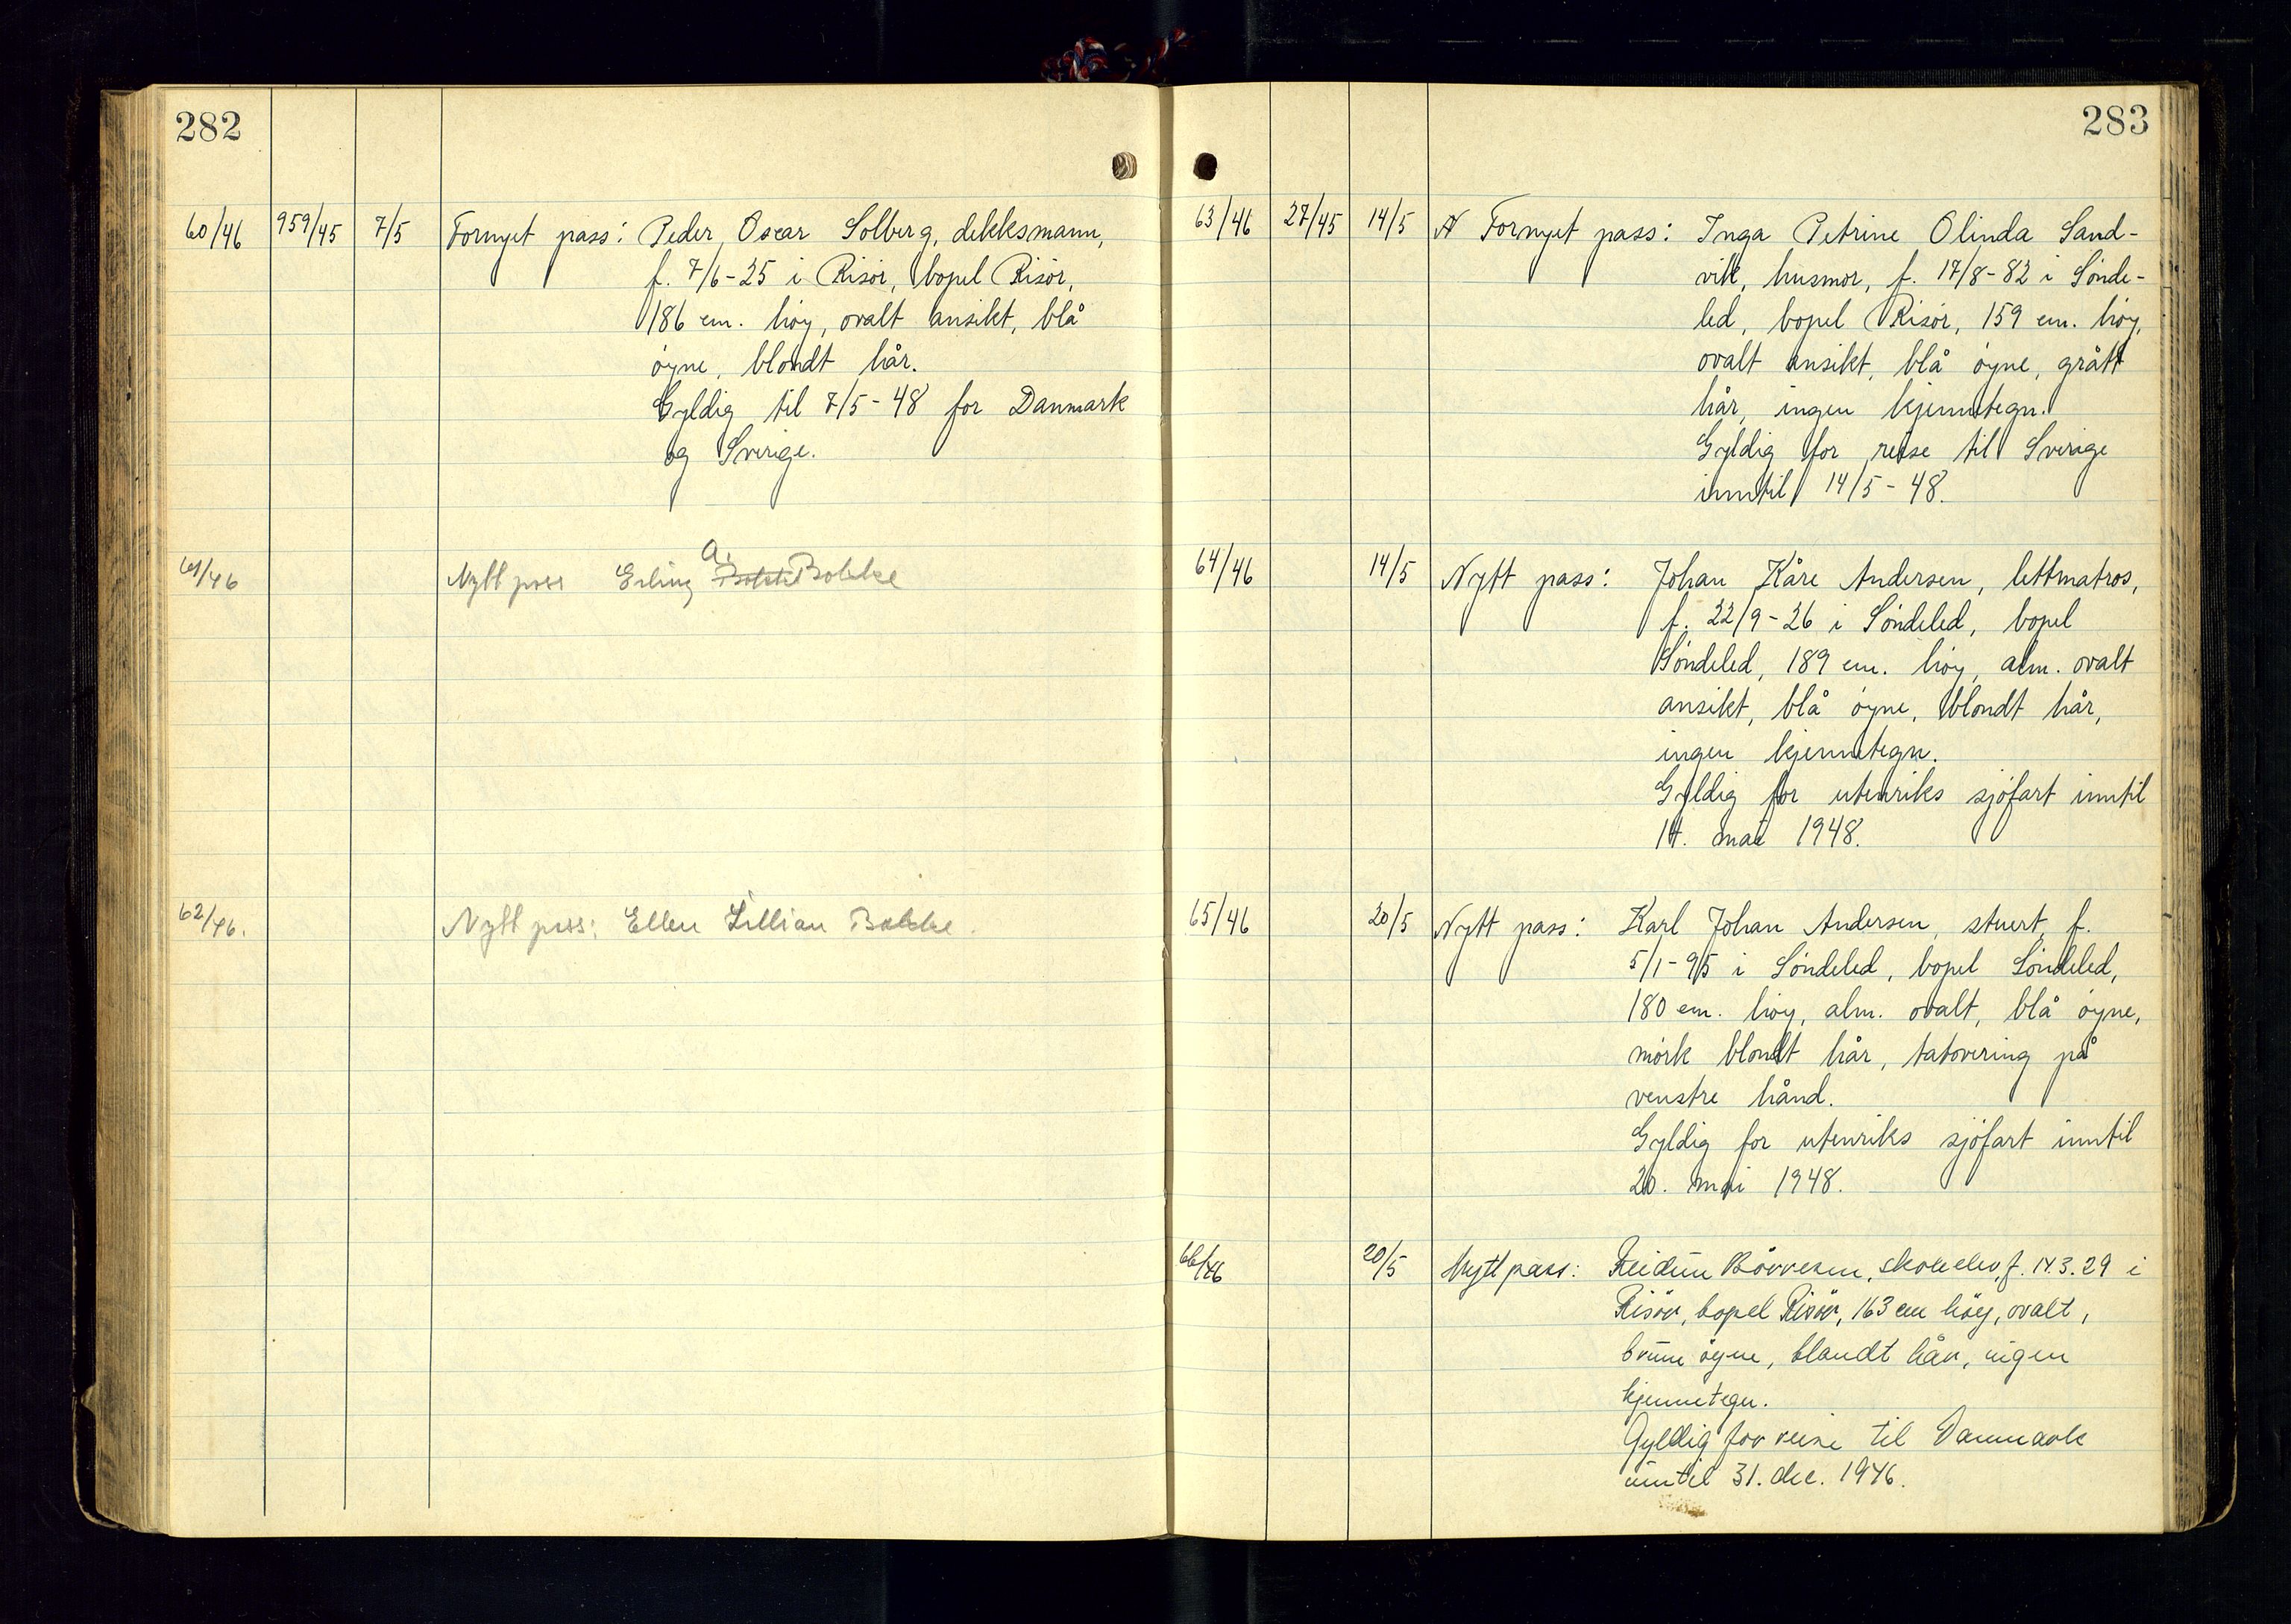 282
60/46 959/45 7/5 Fornyet pass: Peder Oscar Solberg, dekksmann,
f. 7/6-25 i Risör, bopel Risör,
186 cm. höy, ovalt ansikt, blå
öyne, blondt hår.
Gyldig til 7/5-48 for Danmark
og Sverige.
A.
61/46 Nytt pass Erling
62/46. Nytt pass: Ellen Lillian
283
63/46 27/45 14/5 Fornyet pass: Inga Petrine Olinda Sand-
vik, husmor, f. 17/8-82 i Sönde-
led, bopel Risör, 159 cm. höy,
ovalt ansikt, blå öyne, grått
hår, ingen kjennetegn.
Gyldig for reise til Sverige
inntil 14/5-48.
64/46 14/5 Nytt pass: Johan Kåre Andersen, lettmatros,
f. 22/9-26 i Söndeled, bopel
Söndeled, 189 cm. höy, alm. ovalt
ansikt, blå öyne, blondt hår,
ingen kjennetegn.
Gyldig for utenriks sjöfart inntil
14. mai 1948.
65/46 20/5 Nytt pass: Karl Johan Andersen, stuert, f.
5/1-95 i Söndeled, bopel Söndeled,
180 cm. höy, alm. ovalt, blå öyne,
mörk blondt hår, tatovering på
venstre hånd.
Gyldig for utenriks sjöfart inntil
20. mai 1948.
66/46 20/5 Nytt pass: Reidun Börresen, skoleelev, f. 14.3.29 i
Risör, bopel Risör, 163 cm höy, ovalt,
brune öyne, blondt hår, ingen
kjennetegn.
Gyldig for reise til Danmark
inntil 31. dec. 1946.